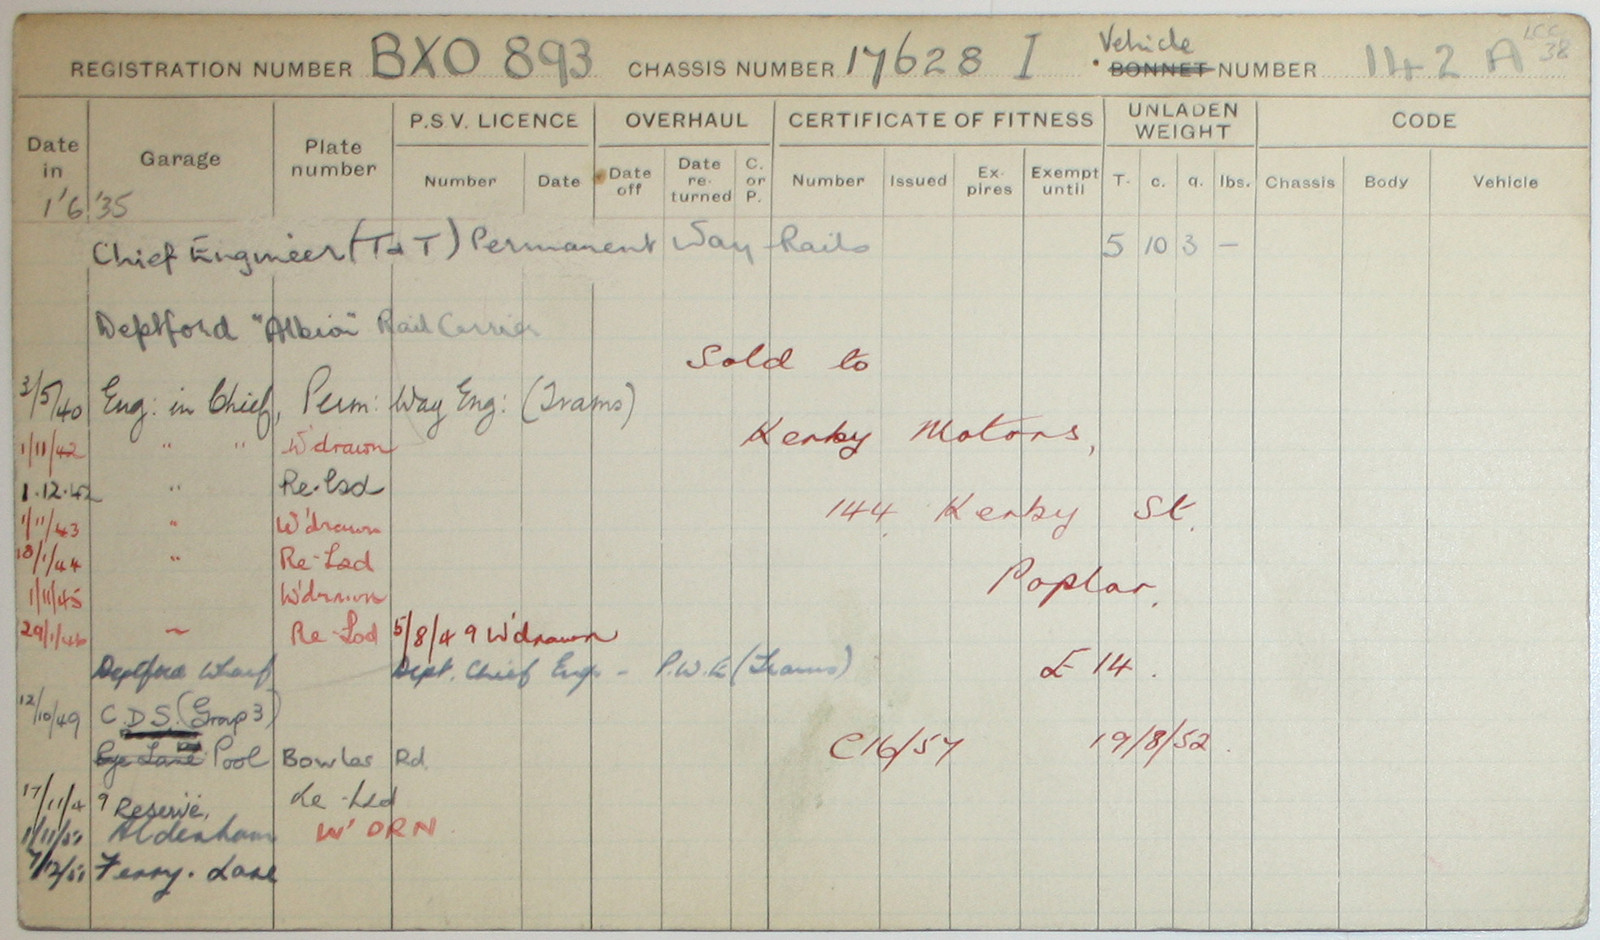 LCC
38
REGISTRATION NUMBER BXO 893 CHASSIS NUMBER 17628 I Vehicle BONNET NUMBER 142 A
Date in Garage Plate number P.S.V. LICENCE OVERHAUL CERTIFICATE OF FITNESS UNLADEN WEIGHT CODE
Number Date Date off Date re-turned C. or P. Number Issued Ex-pires Exempt until T. c. q. lbs. Chassis Body Vehicle
1'6'35
Chief Engineer (T & T) Permanent Way Rails 5 10 3 —
Deptford "Albion" Rail Carrier
Sold to
3/5/40 Eng: in Chief, Perm: Way Eng: (Trams)
Kerby Motors,
1/11/42 " " W'drawn
1.12.42 " Re-Lsd
144 Kerby St.
1/11/43 " W'drawn
18/1/44 " Re-Lsd
Poplar.
1/11/45 W'drawn
29/1/46 " Re-Lsd 5/8/49 W'drawn
Deptford Wharf Dept. Chief Eng. - P.W.E (Trams) £14.
12/10/49 C.D.S. (Group 3)
Rye Lane Pool Bowles Rd. C16/57 19/8/52.
17/11/49 Reserve, Re-Lsd
1/11/51 Aldenham W'DRN.
7/12/51 Ferry. Lane